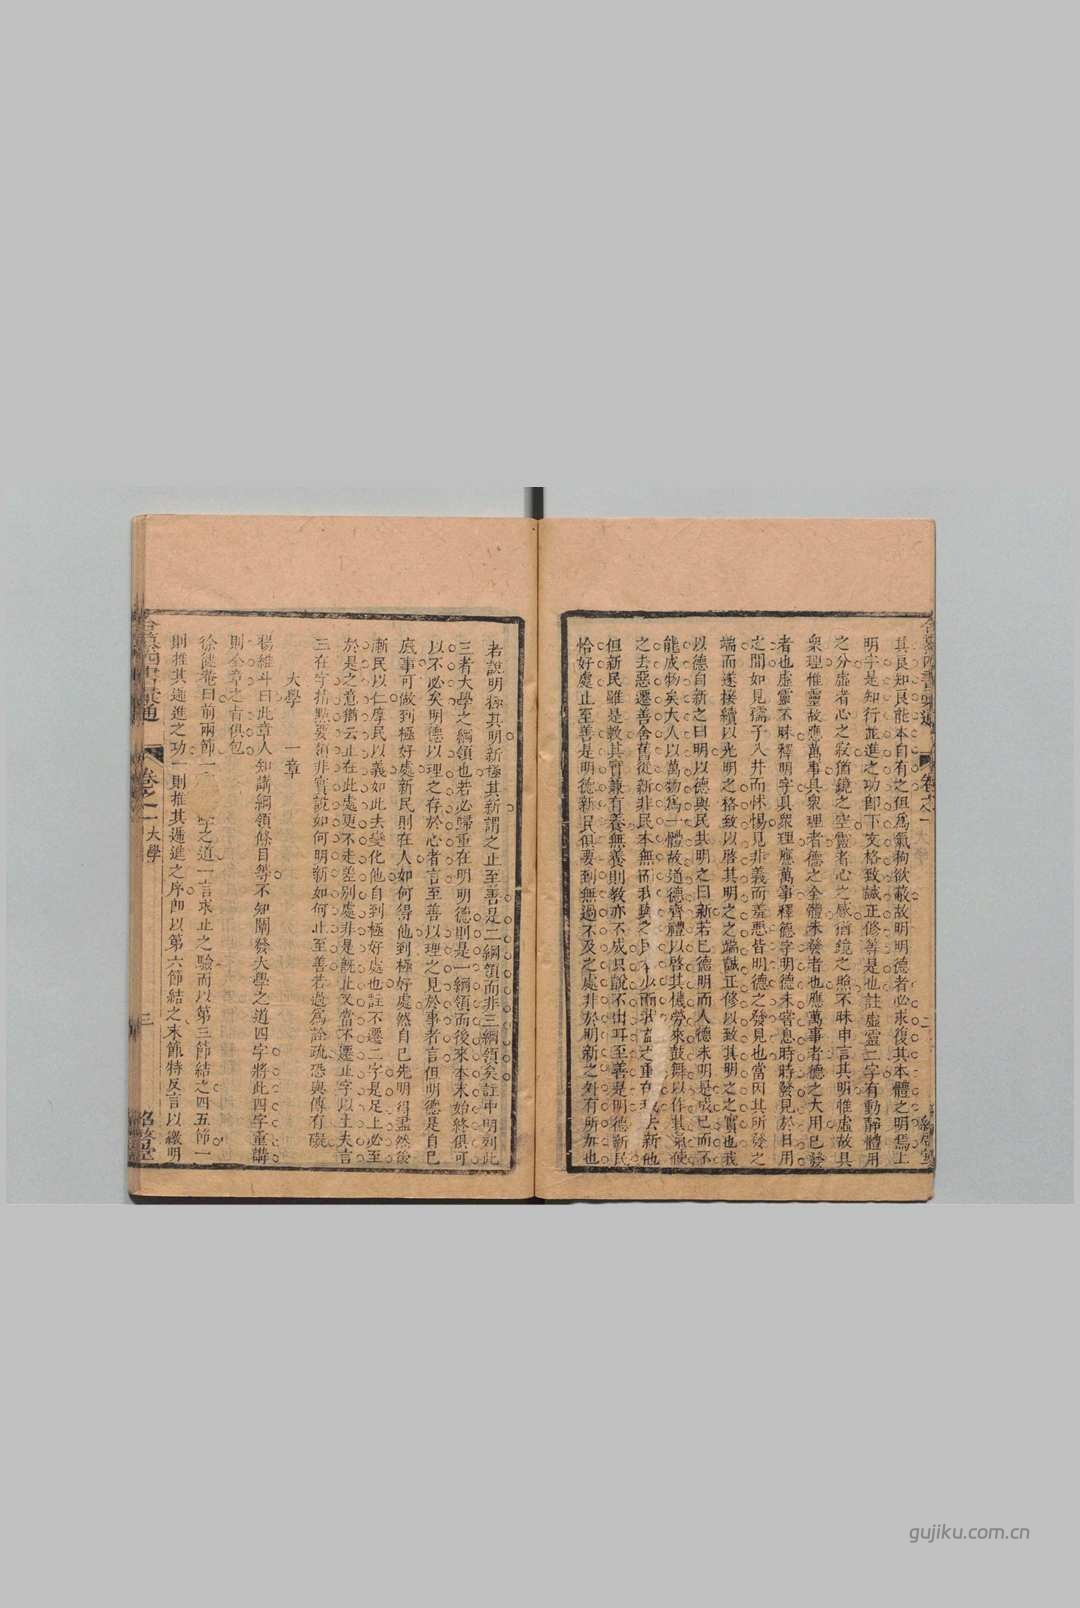 其良知良能本自有之但為氣拘欲蔽故明明德者必求復其本體之明焉上
明字是知行並進之功即下文格致誠正修等是也註虛靈二字有動靜體用
之分虛者心之寂猶鏡之空靈者心之感猶鏡之照不昧申言其明惟虛故具
衆理惟靈故應萬事具衆理者德之全體未發者也應萬事者德之大用已發
者也虛靈不昧釋明字具衆理應萬事釋德字明德未嘗息時時發見於日用
之間如見孺子入井而怵惕見非義而羞惡皆明德之發見也當因其所發之
端而遂接續以光明之格致以啓其明之之端誠正修以致其明之之實也我
以德自新之曰明以德與民共明之曰新若已德明而人德未明是成已而不
能成物矣大人以萬物為一體故道德齊禮以啓其機勞來鼓舞以作其氣使
之去惡遷善舍舊從新非民本無而我與之
但新民雖是教其實兼有養無養則教亦不成只說不出耳至善是明德新民
恰好處止至善是明德新民俱要到無過不及之處非於明新之外有所加也
者說明極其明新極其新謂之止至善是二綱領而非三綱領矣註中明列此
三者大學之綱領也若必歸重在明明德則是一綱領而後來本末始終俱可
以不必矣明德以理之存於心者言至善以理之見於事者言但明德是自己
底事可做到極好處新民則在人如何得他到極好處然自己先明得盡然後
漸民以仁摩民以義如此去變化他自到極好處也註不遷二字是足上必至
於是之意猶云止在此處更不走差別處非是旣止又當不遷止字以工夫言
三在字指點要領非實說如何明新如何止至善若過為詮疏恐與傳有礙
大學 一章
楊維斗曰此章人知講綱領條目等不知闡發大學之道四字將此四字重講
則全章之旨俱包
徐儆菴曰前兩節一 學之道一言求止之驗而以第三節結之四五節一
則推其逆進之功一則推其遞進之序卽以第六節結之末節特反言以繳明
卷之一 大學 三